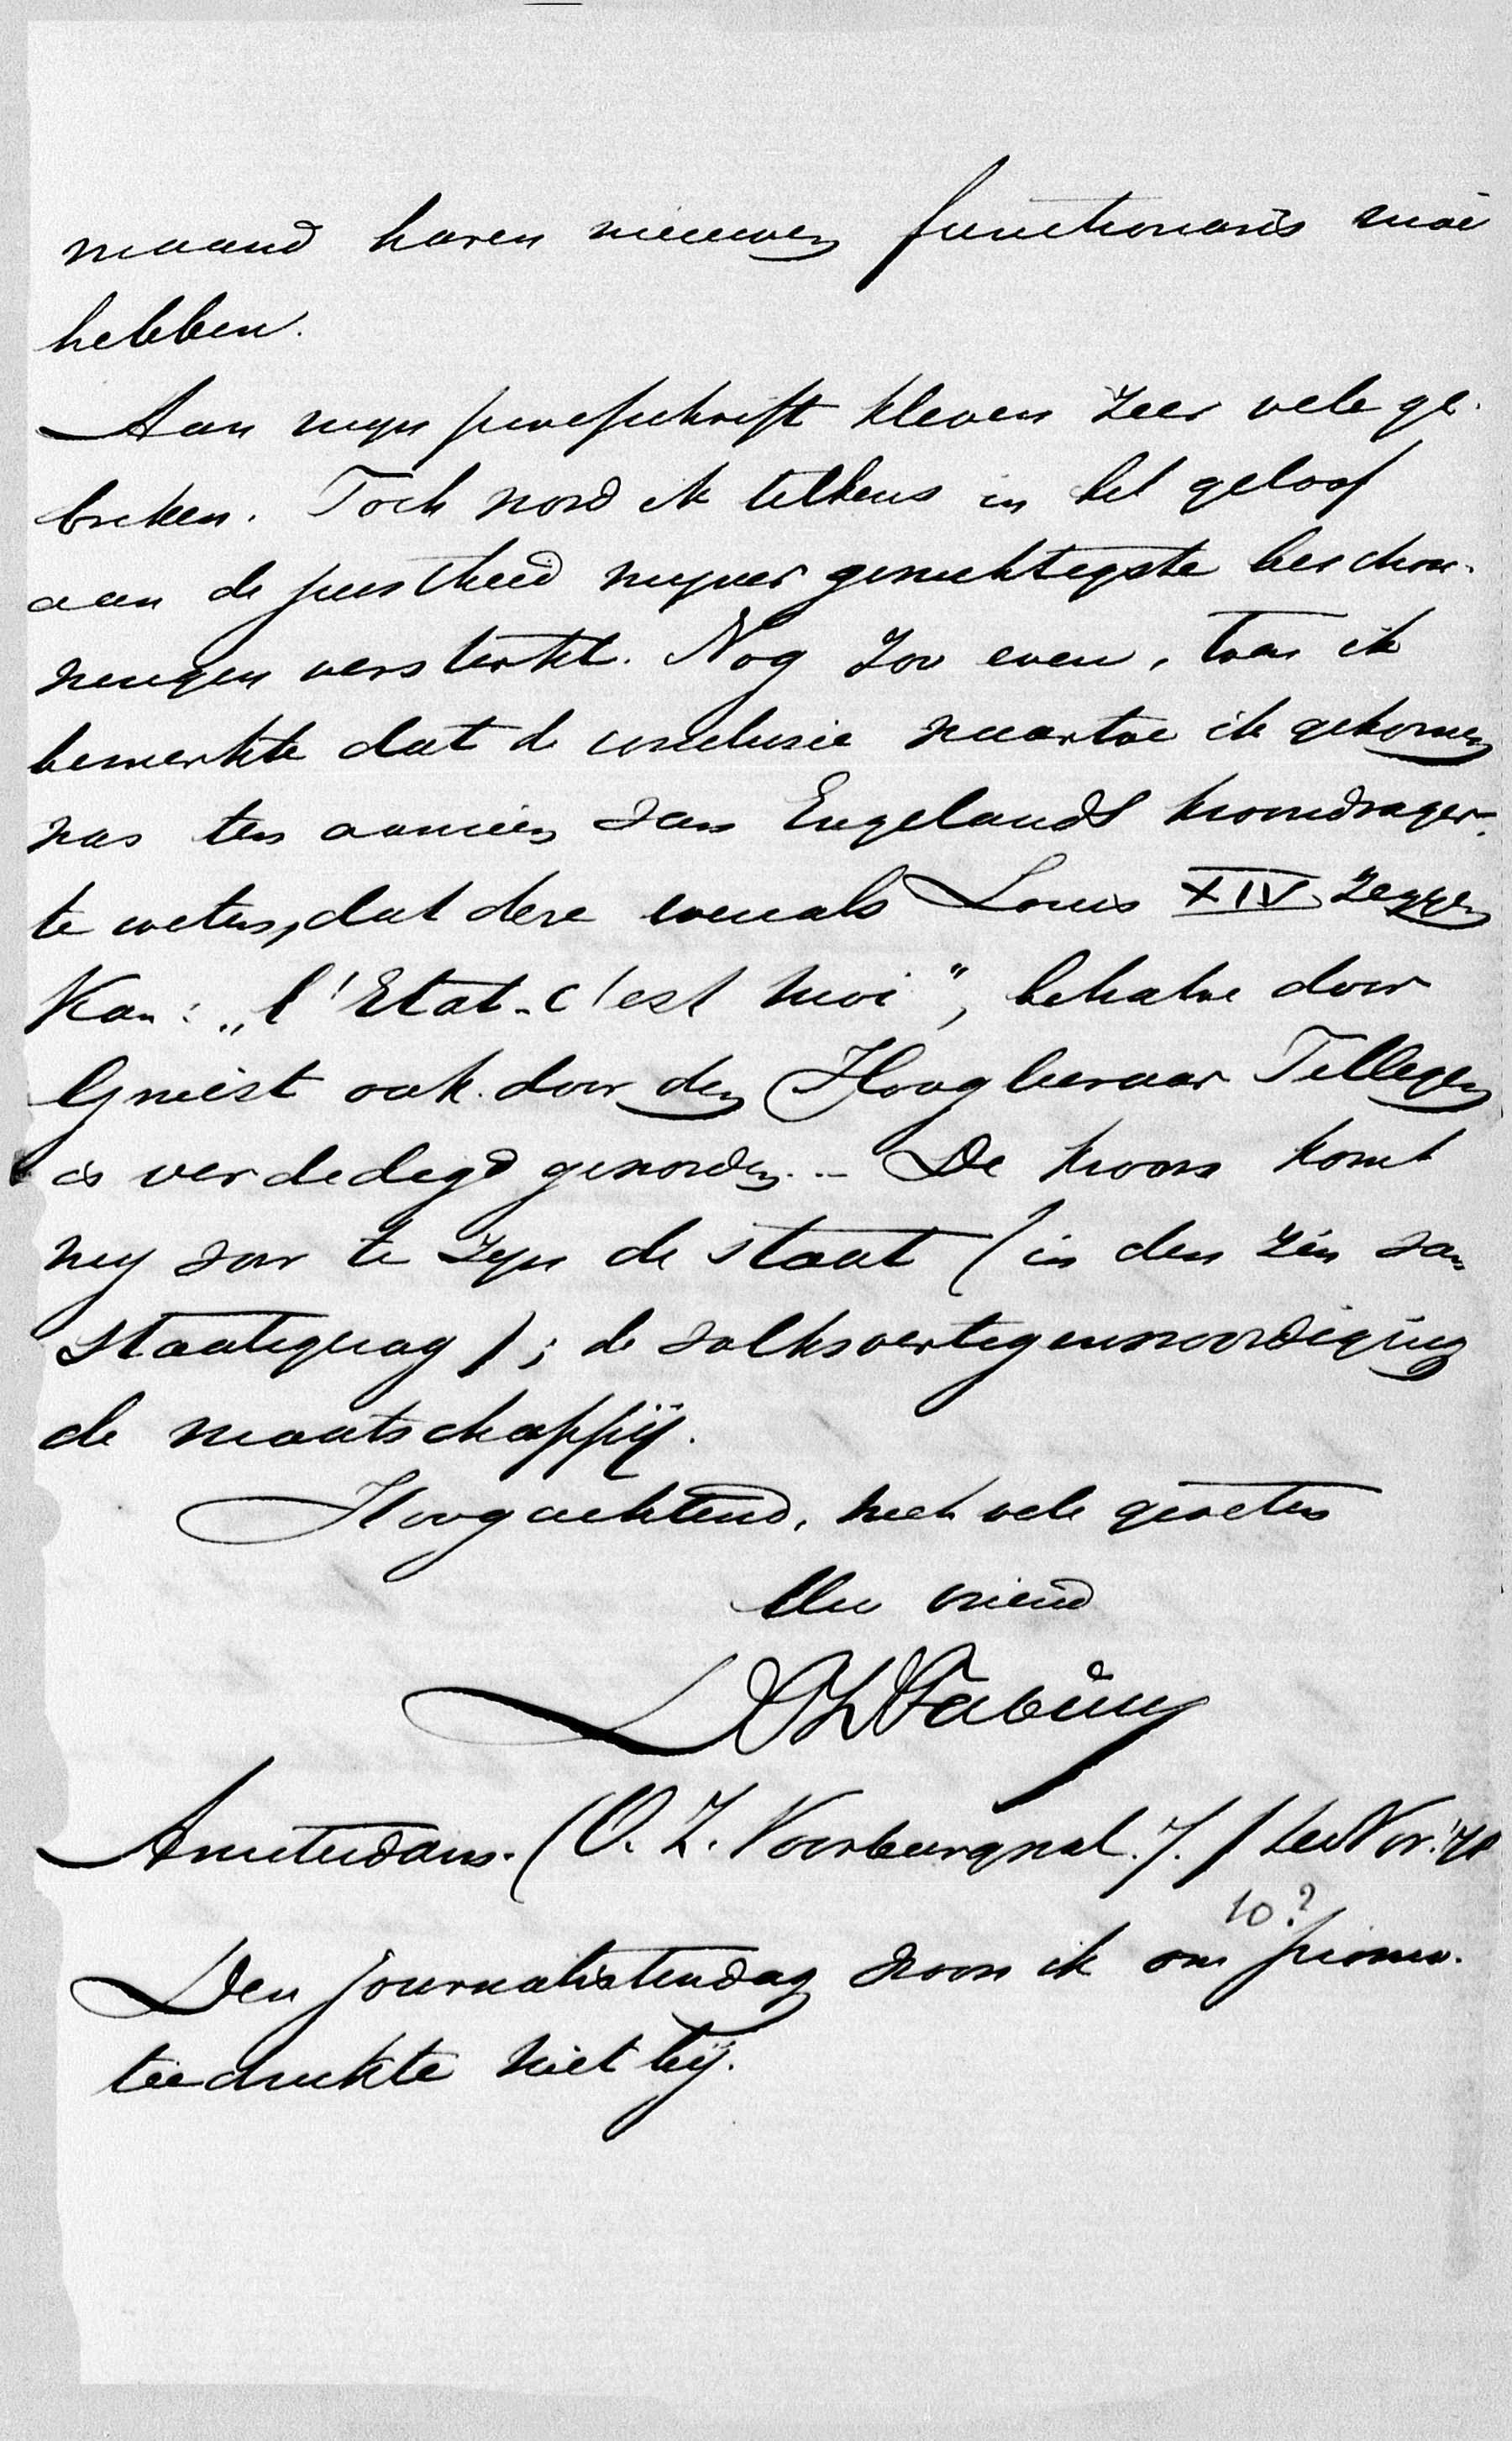 maand haren nieuwen functionaris moe
hebben.
Aan mijn proefschrift kleven zeer vele ge-
breken. Toch word ik telkens in het geloof
aan de juistheid mijner gewichtigste beschou-
wingen versterkt. Nog zoo even, toen ik
bemerkte dat de conclusie waartoe ik gekomen
was ten aanzien van Engelands kroondrager:
te weten, dat deze evenals Louis XIV zeggen
kan: „l'Etat-c'est moi", behalve door
Gneist ook door den Hoogleeraar Tellegen
is verdedigd geworden. – De kroon komt
mij voor te zijn de staat (in den zin van
staatsgezag); de volksvertegenwoordiging
de maatschappij.
Hoogachtend, met vele groeten
Uw vriend
Amsterdam. (O. Z. Voorburgwal. 7.) Nov.
10?
Den journalistendag woon ik om promo-
tiedrukte niet bij.